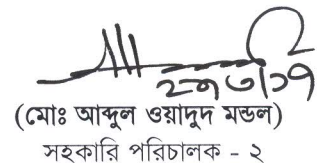 (মোঃ আব্দুল ওয়াদুদ মন্ডল)
সহকারি পরিচালক - ২